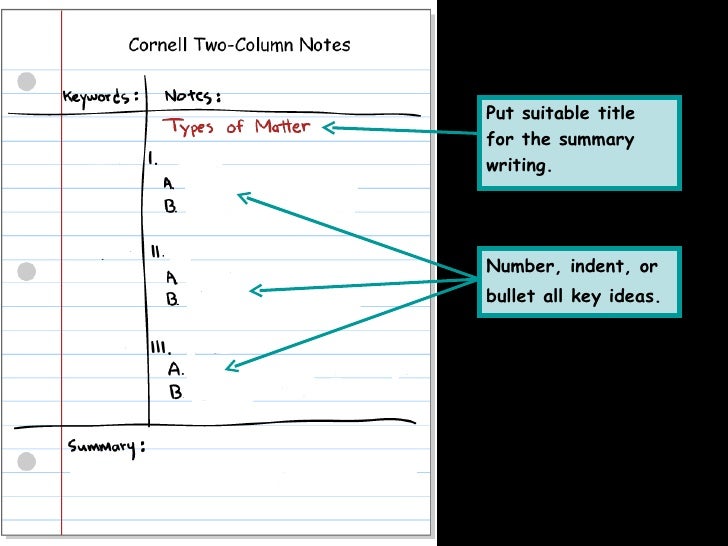 Cornell Two-Column Notes
Keywords: Notes:
Types of Matter
I.
A.
B.
II.
A
B.
III.
A.
B.
Summary:
Put suitable title
for the summary
writing.
Number, indent, or
bullet all key ideas.